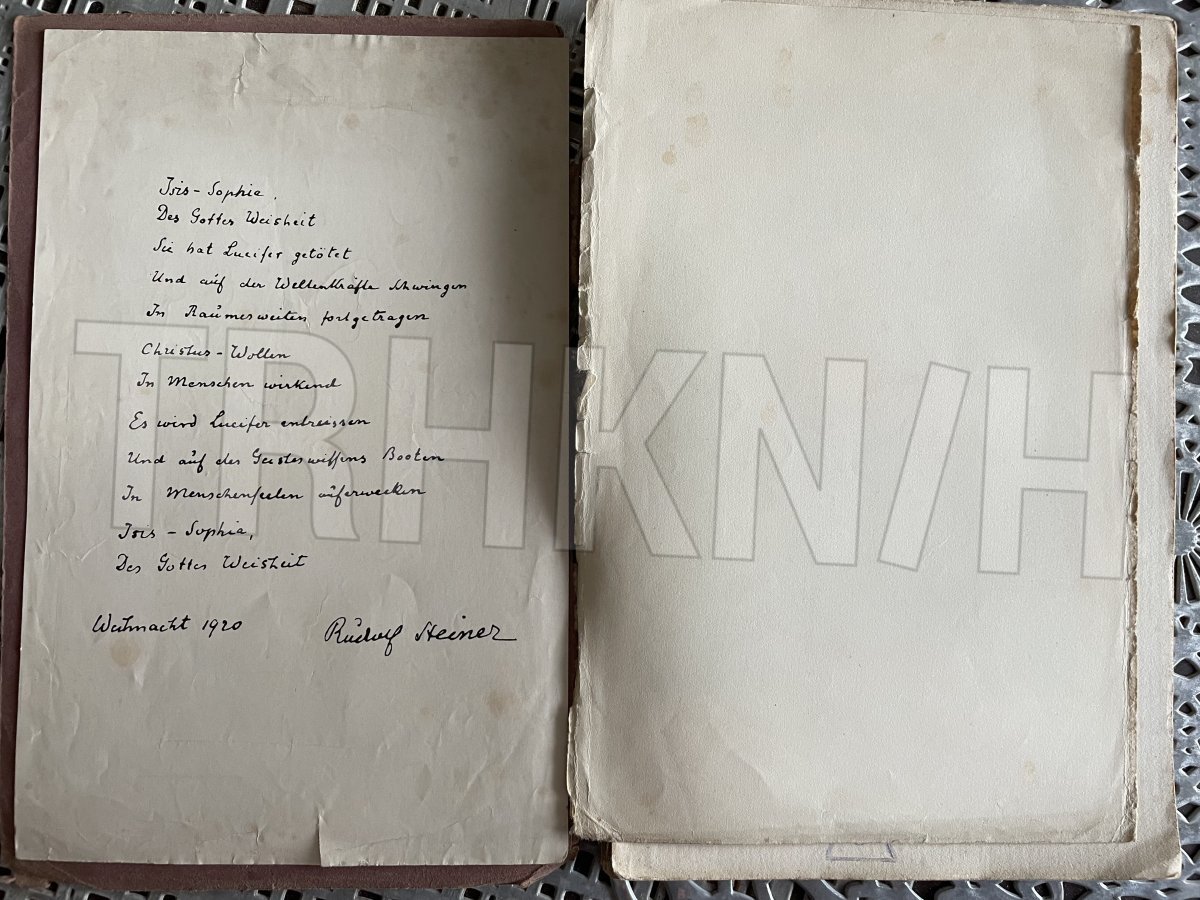 Isis-Sophia,
Des Gottes Weisheit
Sie hat Lucifer getötet
Und auf der Weltenkräfte Schwingen
In Raumesweiten fortgetragen
Christus-Wollen
In Menschen wirkend
Es wird Lucifer entreissen
Und auf des Geisteswissens Booten
In Menschenseelen auferwecken
Isis-Sophia,
Des Gottes Weisheit
Weihnacht 1920 Rudolf Steiner
TRHKN/H